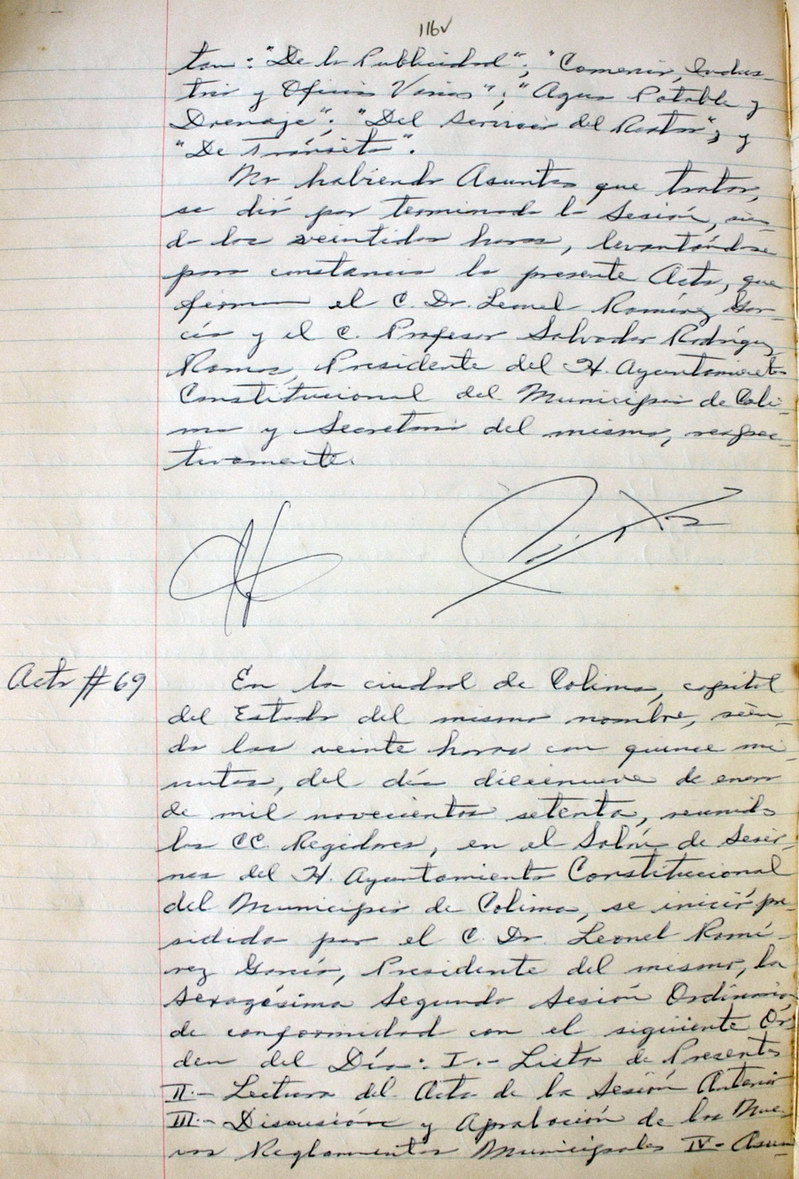 116v
tan: "De la Publicidad"; "Comercio, Indus-
tria y Oficios Varios"; "Agua Potable y
Drenaje"; "Del Servicio del Rastro"; y
"De Tránsito".
No habiendo Asuntos que tratar,
se dió por terminada la Sesión, sien-
do las veintidos horas, levantándose
para constancia la presente Acta, que
firman el C. Dr. Leonel Ramírez Gar-
cía y el C. Profesor Salvador Rodríguez
Ramos, Presidente del H. Ayuntamiento
Constitucional del Municipio de Coli-
ma y Secretario del mismo, respec-
tivamente.
Acta #69
En la ciudad de Colima, capital
del Estado del mismo nombre, sien-
do las veinte horas con quince mi-
nutos, del día diecinueve de enero
de mil novecientos setenta, reunidos
los CC. Regidores, en el Salón de Sesio-
nes del H. Ayuntamiento Constitucional
del Municipio de Colima, se inició pre-
sidida por el C. Dr. Leonel Ramí-
rez García, Presidente del mismo, la
Sexagésima Segunda Sesión Ordinaria,
de conformidad con el siguiente Or-
den del Día: I.- Lista de Presentes
II.- Lectura del Acta de la Sesión Anterior
III.- Discusión y Aprobación de los Nue-
vos Reglamentos Municipales IV- Asun-